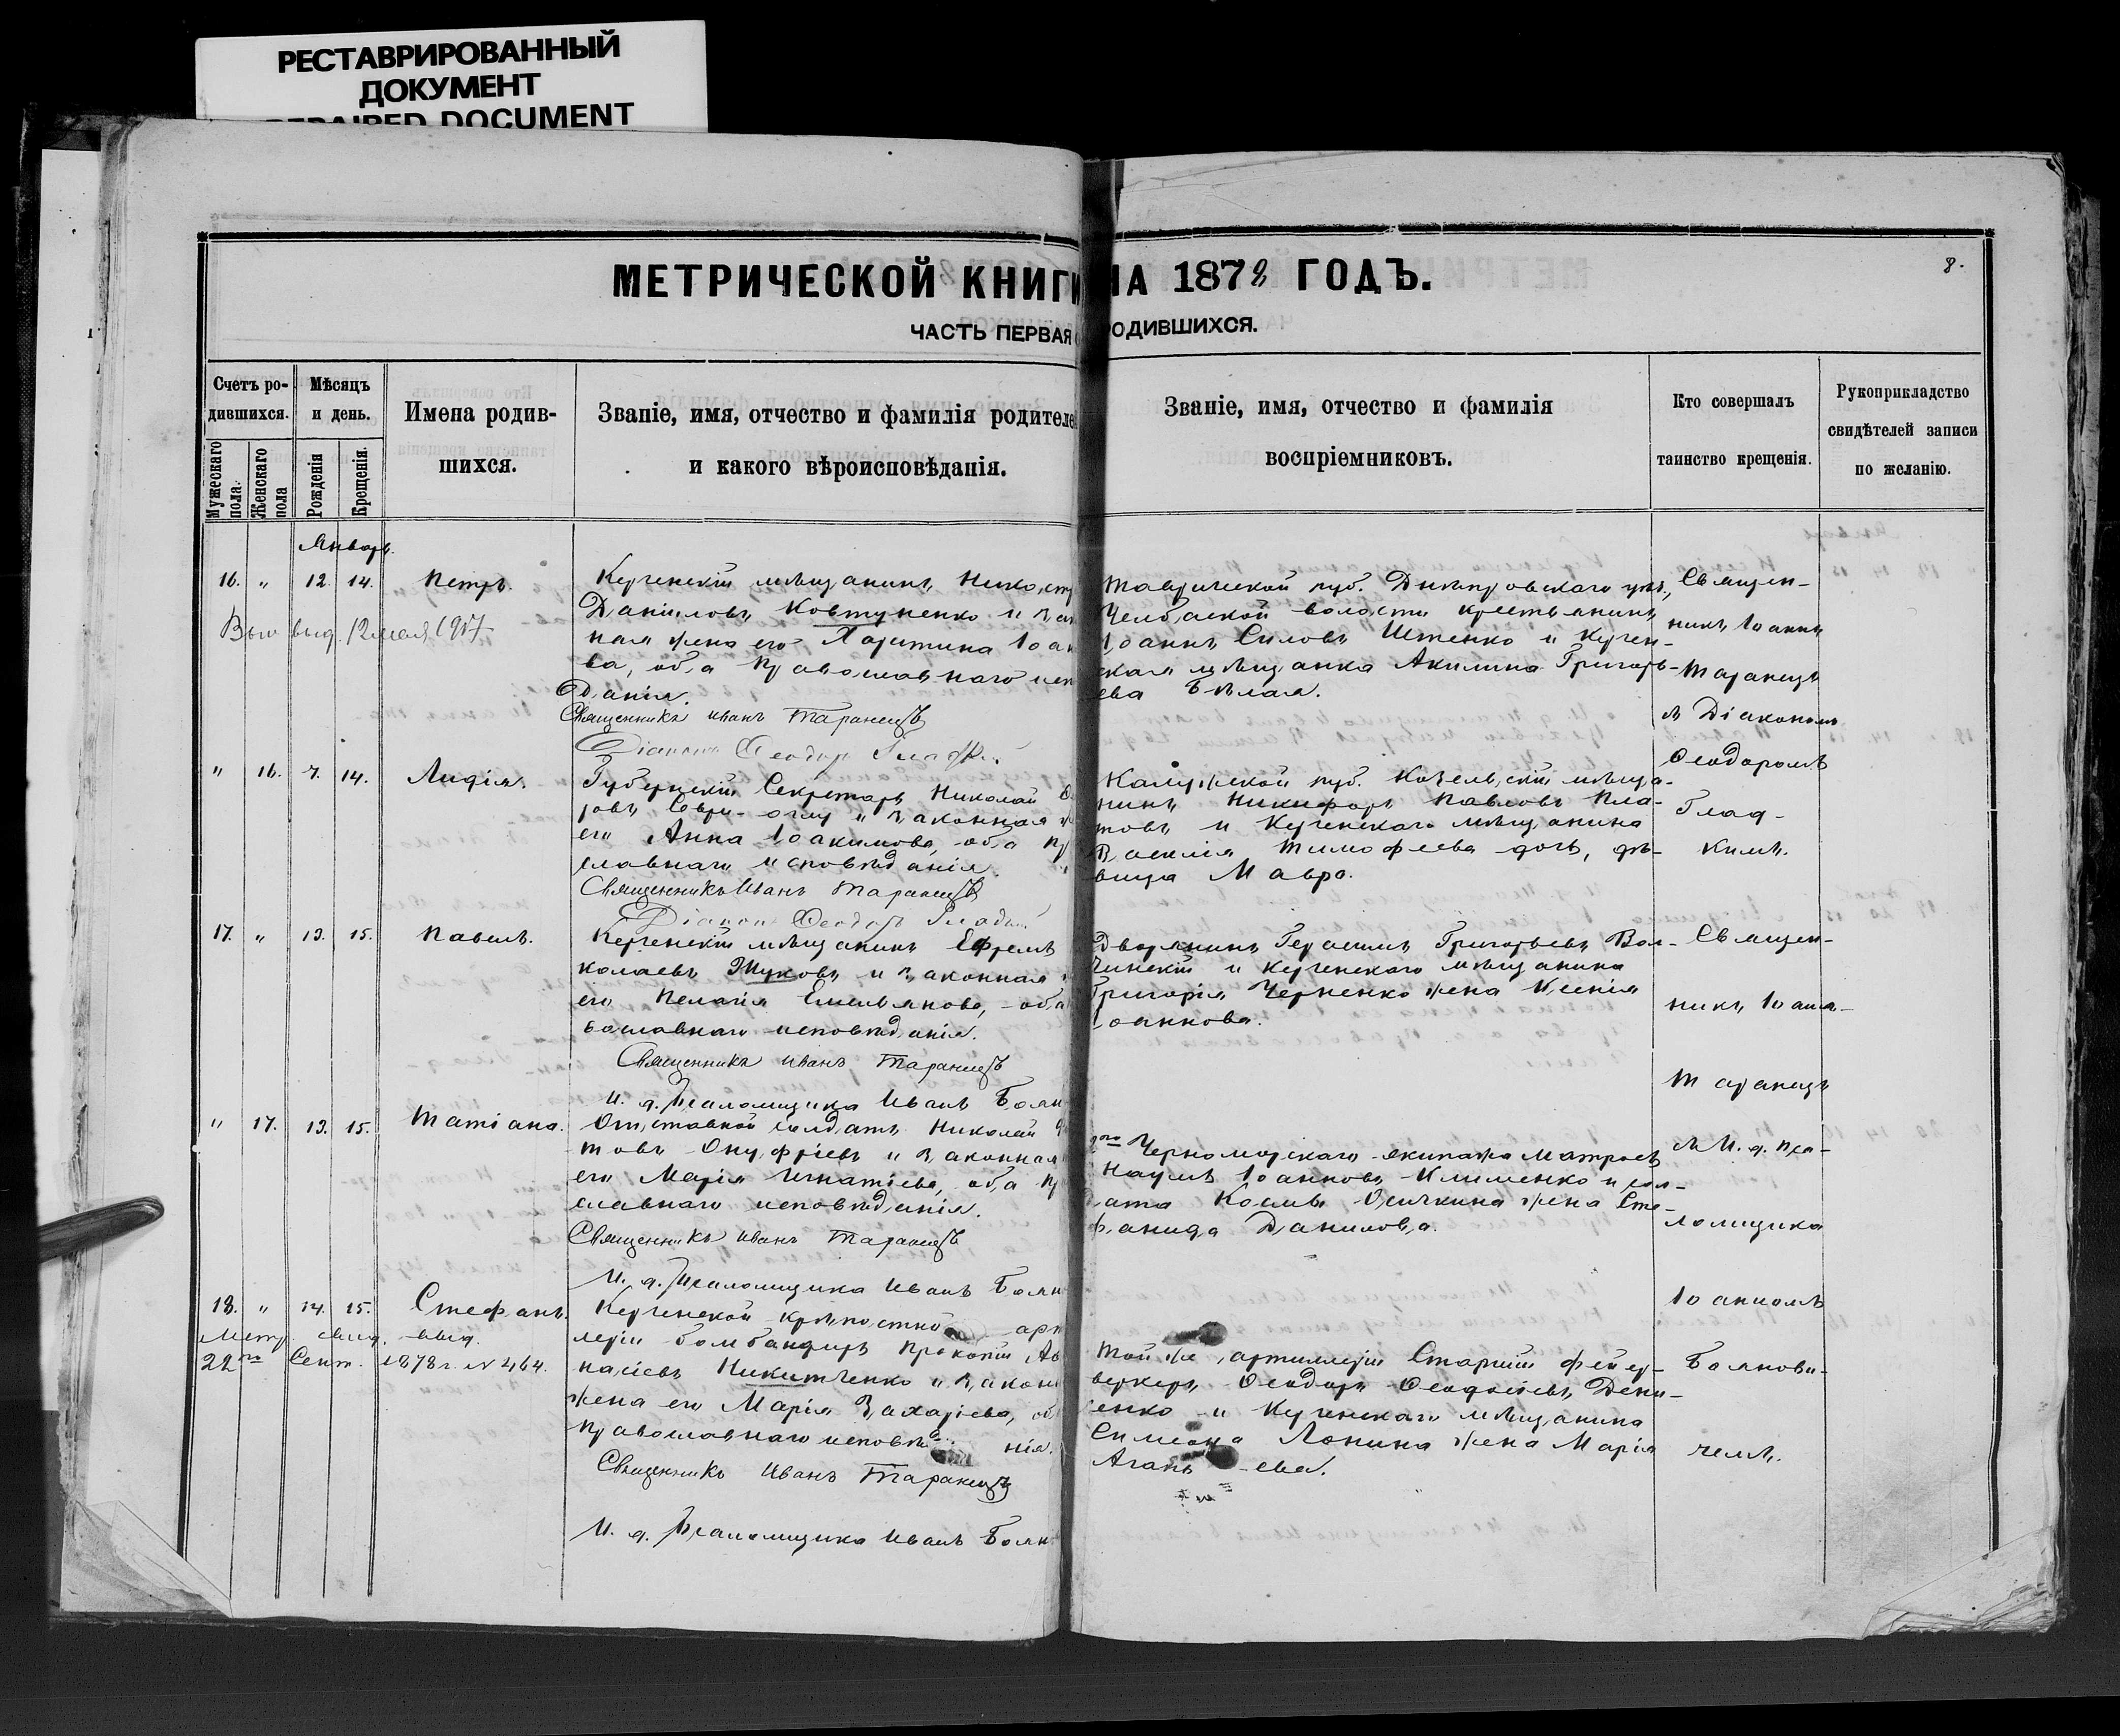 РЕСТАВРИРОВАННЫЙ
ДОКУМЕНТ
REPAIRED DOCUMENT
8.
МЕТРИЧЕСКОЙ КНИГИ НА 1878 ГОДЪ.
ЧАСТЬ ПЕРВАЯ О РОДИВШИХСЯ.
Счетъ ро-
дившихся.
Мужескаго пола.
Женскаго пола
Мѣсяцъ
и день.
Рожденія
Крещенія.
Имена родив-
шихся.
Званіе, имя, отчество и фамилія родителе
и какого вѣроисповѣданія.
Званіе, имя, отчество и фамилія
воспріемниковъ.
Кто совершалъ
таинство крещенія.
Рукоприкладство
свидѣтелей записи
по желанію.
Январь.
16. " 12. 14. Петръ.
выд. 12 мая 1917
Керченскій мѣщанинъ Никостр
Даніиловъ Ковтуненко и зак
ная жена его Харитина Іоан
ва, оба православнаго исп
данія.
Священникъ Иванъ Таранецъ
Діаконъ Ѳеодоръ Гладкій
Таврической губ. Днѣпровскаго уѣз.,
Челбаской волости крестьянинъ
Іоаннъ Силовъ Ищенко и Керчен-
ская мѣщанка Акилина Григорь-
ева Бѣлая.
Священ-
никъ Іоаннъ
Таранецъ
съ Діакономъ
Ѳеодоромъ
Глад-
кимъ.
" 16. 7. 14. Лидія.
Губернскій Секретарь Николай
ровъ и законная ж
его Анна Іоакимова, оба пр
славнаго исповѣданія.
Священникъ Иванъ Таранецъ
Діаконъ Ѳеодоръ Гладкій
Калужской губ. Козельскій мѣща-
нинъ Никифоръ Павловъ Пла-
товъ и Керченскаго мѣщанина
Василія Тимофеева дочь, дѣ-
вица Мавра.
17. " 13. 15. Павелъ.
Керченскій мѣщанинъ Ефремъ
колаевъ Жуковъ и законная
его Пелагія Емельянова, оба
вославнаго исповѣданія.
Священникъ Иванъ Таранецъ
И. д. Псаломщика Иванъ Боян
Дворянинъ Герасимъ Григорьевъ Вол-
чинскій и Керченскаго мѣщанина
Григорія Черненко жена Ксенія
Іоаннова.
Священ-
никъ Іоан-
Таранецъ
" 17. 13. 15. Татіана.
Отставной солдатъ Николай
товъ Онуфріевъ и законная
его Марія Игнатіева, оба пр
славнаго исповѣданія.
Священникъ Иванъ Таранецъ
И. д. Псаломщика Иванъ Боян
Черноморскаго экипажа матросъ
Наумъ Іоанновъ Клименко и сол-
дата Космы Осичкина жена Сте-
фанида Данилова.
съ И. д. Пса-
ломщика
Іоанномъ
Боянови-
чемъ.
18. " 14. 15. Стефанъ.
Метр. свид. выд.
22го Сент. 1878 г. № 464.
Керченской крѣпостной арт
леріи бомбандиръ Прокопій Аѳ
насіевъ Никитченко и закон
жена его Марія Захаріева, об
православнаго исповѣ нія.
Священникъ Иванъ Таранецъ
И. д. Псаломщика Иванъ Боян
Той же артиллеріи Старшій фейер-
веркеръ Ѳеодоръ Ѳеодосіевъ Дени-
сенко и Керченскаго мѣщанина
Симеона Лонина жена Марія